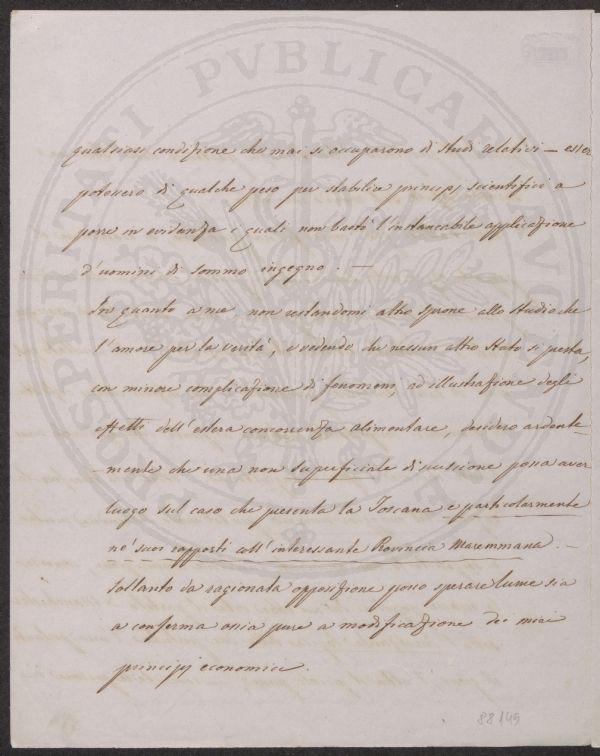 qualsiasi condizione che mai si occuparono di studi relativi — esser
potessero di qualche peso per stabilire principj scientifici a
porre in evidenza i quali non bastò l'instancabile applicazione
d'uomini di sommo ingegno. —
In quanto a me non restandomi altro sprone allo studio che
l'amore per la verità, e vedendo che nessun altro Stato si presta,
con minore complicazione di fenomeni, ad illustrazione degli
effetti dell'estera concorrenza alimentare, desidero ardente-
-mente che una non superficiale discussione possa aver
luogo sul caso che presenta la Toscana e particolarmente
ne' suoi rapporti coll'interessante Provincia Maremmana. —
Soltanto da ragionata opposizione posso sperare lume sia
a conferma ossia pure a modificazione dei miei
principj economici.
88149
PROSPERITATI PVBLICAE AVGENDAE